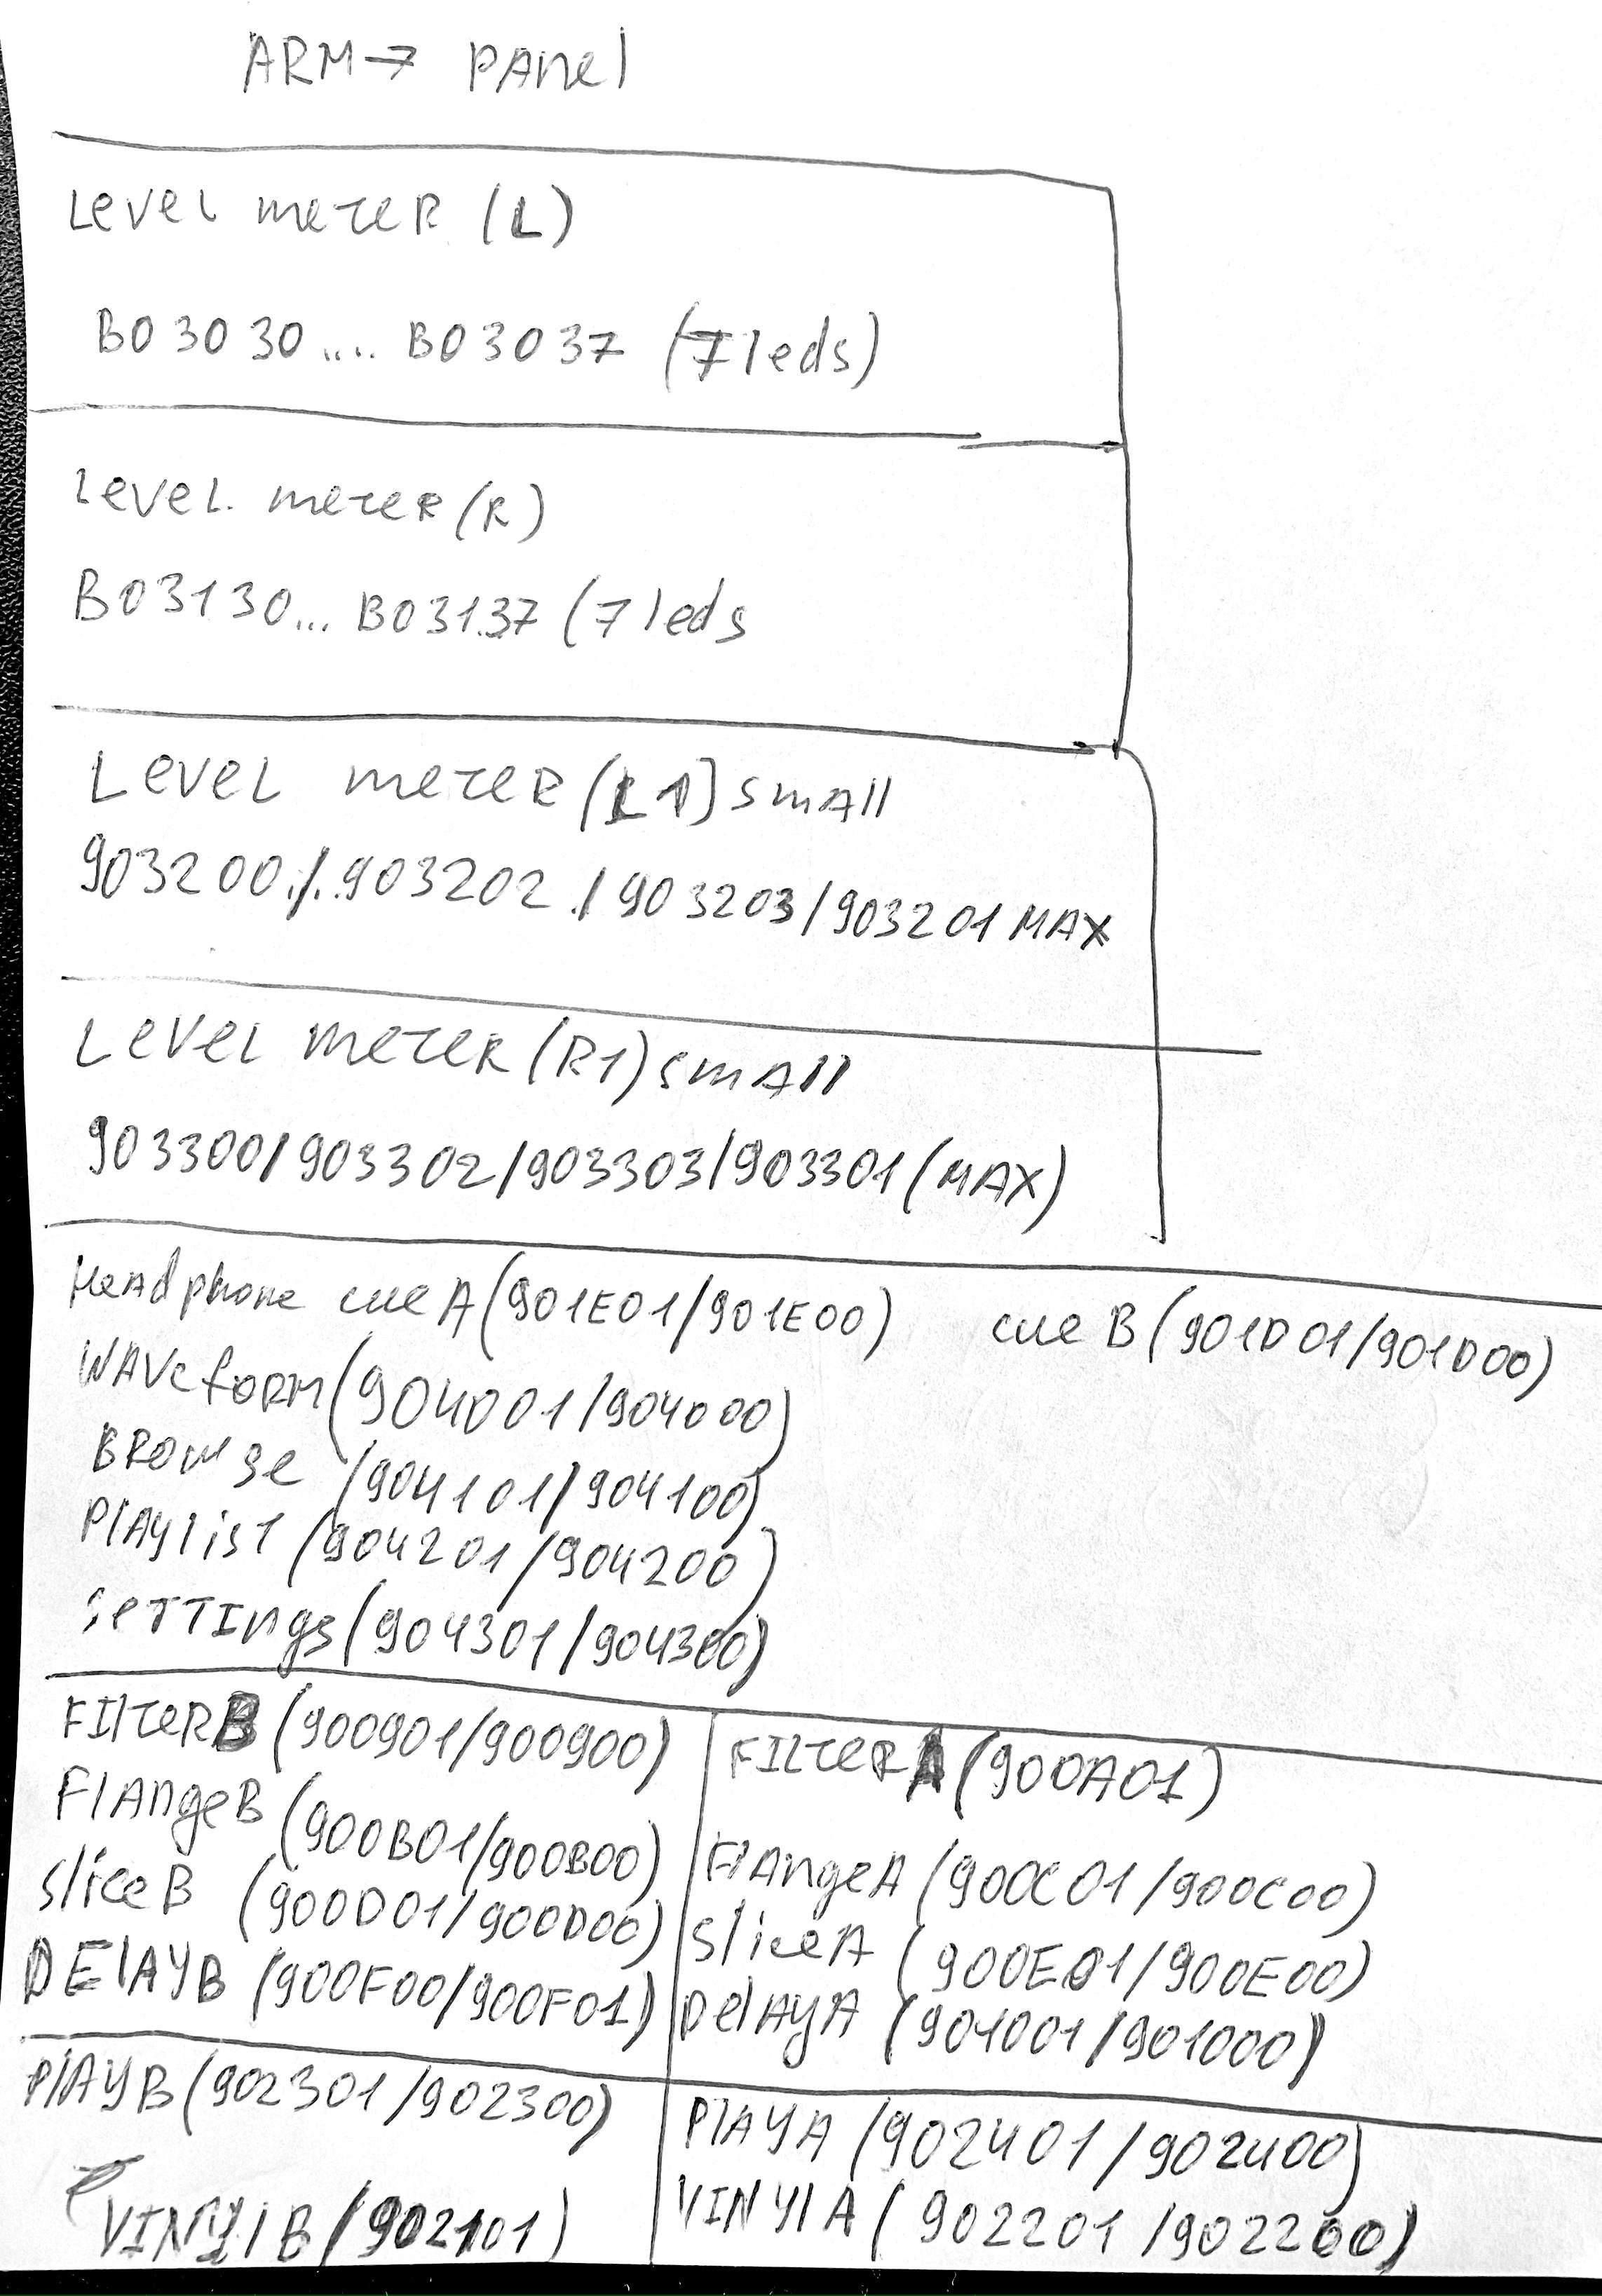 ARM→ PANel
Level meter (L)
B03030.... B03037 (7leds)
Level. meter (R)
B03130... B03137 (7leds
Level meter (L1) small
903200./.903202./903203/903201 MAX
Level meter (R1) small
903300/903302/903303/903301 (MAX)
Headphone cue A (901E01/901E00) cue B (901D01/901D00)
WAVeform (904001/904000)
BROWse (904101/904100)
PlAylist (904201/904200)
SeTTIngs (904301/904300)
FIlterB (900901/900900)
FlAngeB (900B01/900B00)
SliceB (900D01/900D00)
DElAYB (900F00/900F01)
FILterA (900A01)
FlAngeA (900C01/900C00)
SliceA (900E01/900E00)
DelAyA (901001/901000)
PlAYB (902301/902300)
VINYlB (902101)
PlAYA (902401/902400)
VINYlA (902201/902200)